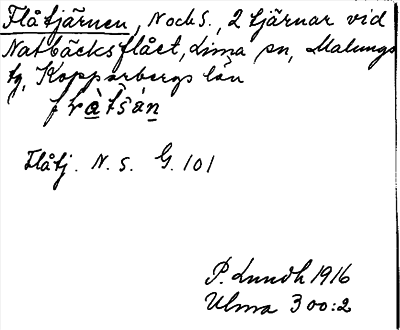 Flåtjärnen, N och S., 2 tjärnar vid
Natbäcksflået, Lima sn, Malungs
tg, Kopparbergs län
Flåtj. N. S. G. 101
P. Lundh 1916
Ulma 300:2